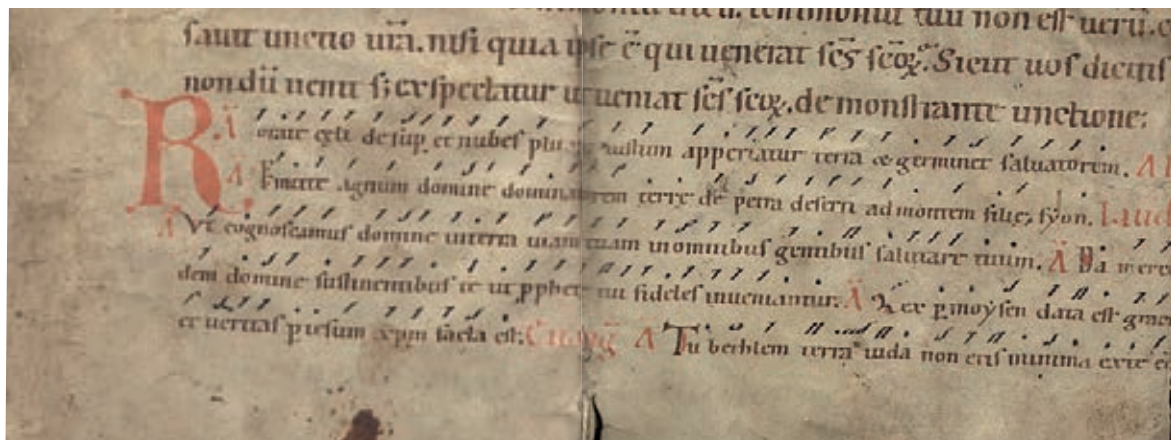 non est ueru. e
sauit unctio ura. nisi quia ipse e qui uenerat scs scox. Sicut uos dicitis
non du uenit s; exspectatur ut ueniat scs scox. de monstrante unctione:
R A orate celi de sup et nubes plu iustum apperiatur terra & germinet saluatorem. A
A Emitte agnum domine dominatorem terre de petra deserti ad montem filie syon. Laud
A Vt cognoscamus domine in terra uiam tuam in omnibus gentibus salutare tuum. A Da merce
dem domine sustinentibus te ut pphete tui fideles inueniantur. A Lex p moysen data est grac
et ueritas p iesum xpm facta est. Euang A Tu bethlem terra iuda non eris minima exte e